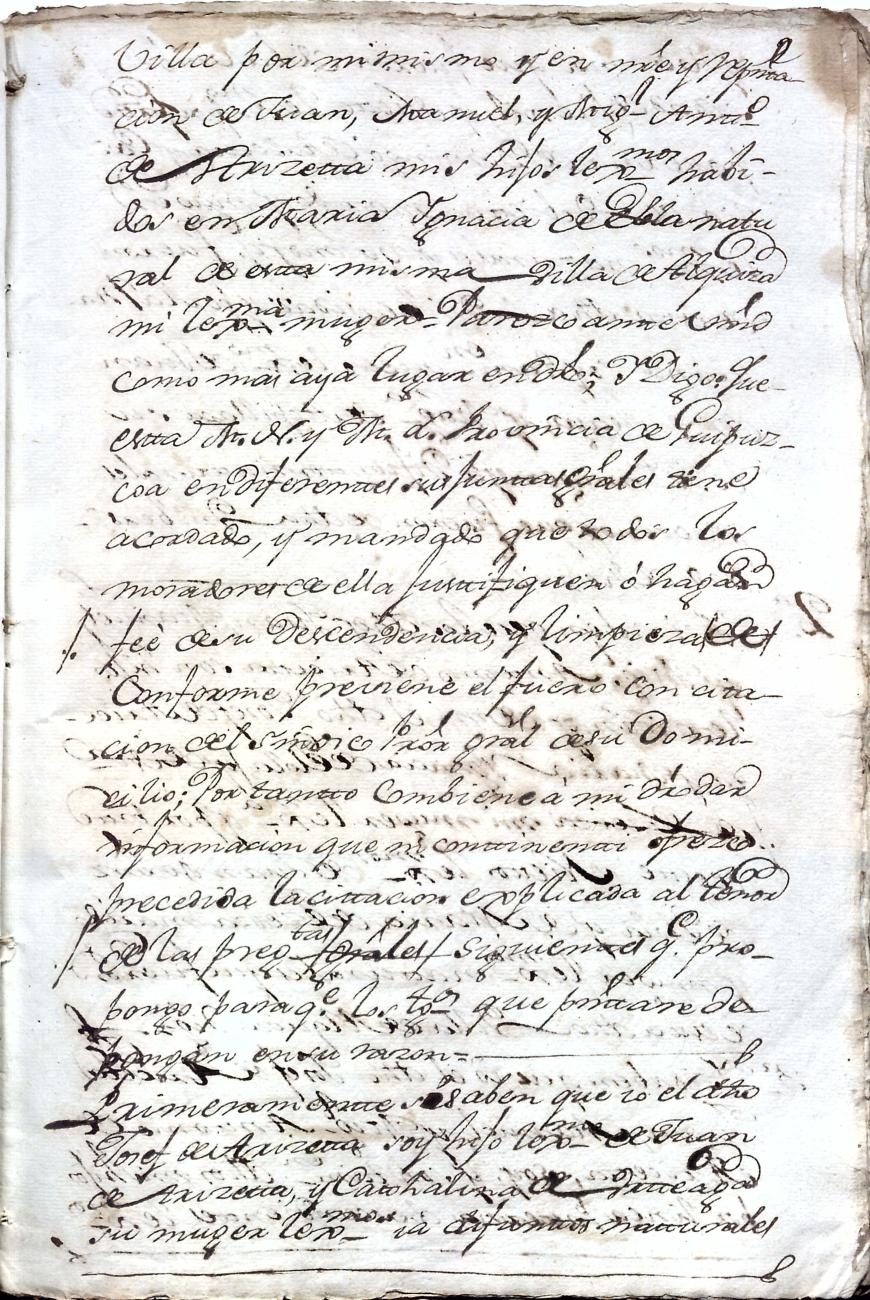 Villa por mi mismo y en nre y repnta
cion de Juan, Manuel, y Migl Antto
de Arizetta mis hijos lexmos habi-
dos en Maria Ygnacia de Olla natu
ral de estta misma Villa de Alquiza
mi lexma muger = Parezco antte Vmd
como mas aya lugar en dro Y Digo: Que
estta M. N. y M. L. Provincia de Guipuz-
coa en diferenttes sus Junttas Grales tiene
acordado, y mandado que todos los
moradores de ella Justtifiquen ó hagan
feé de su Descendencia, y limpieza
Conforme previene el fuero con cita-
cion del Sindico Pror gral de su Domi-
cilio; Por tantto Combiene á mi dro dar
informacion que in conttinentti ofrezco..
precedida la cittacion explicada al thenor
de las pregtas siguienttes q.e pro-
pongo para q.e los tos que presttare de
pongan en su razon =
Primeramentte si saben que io el dho
Josef de Arizetta soy hijo lexmo de Juan
de Arizetta, y Catthalina de Ortteaga
su muger lexmos ia difunttos natturales